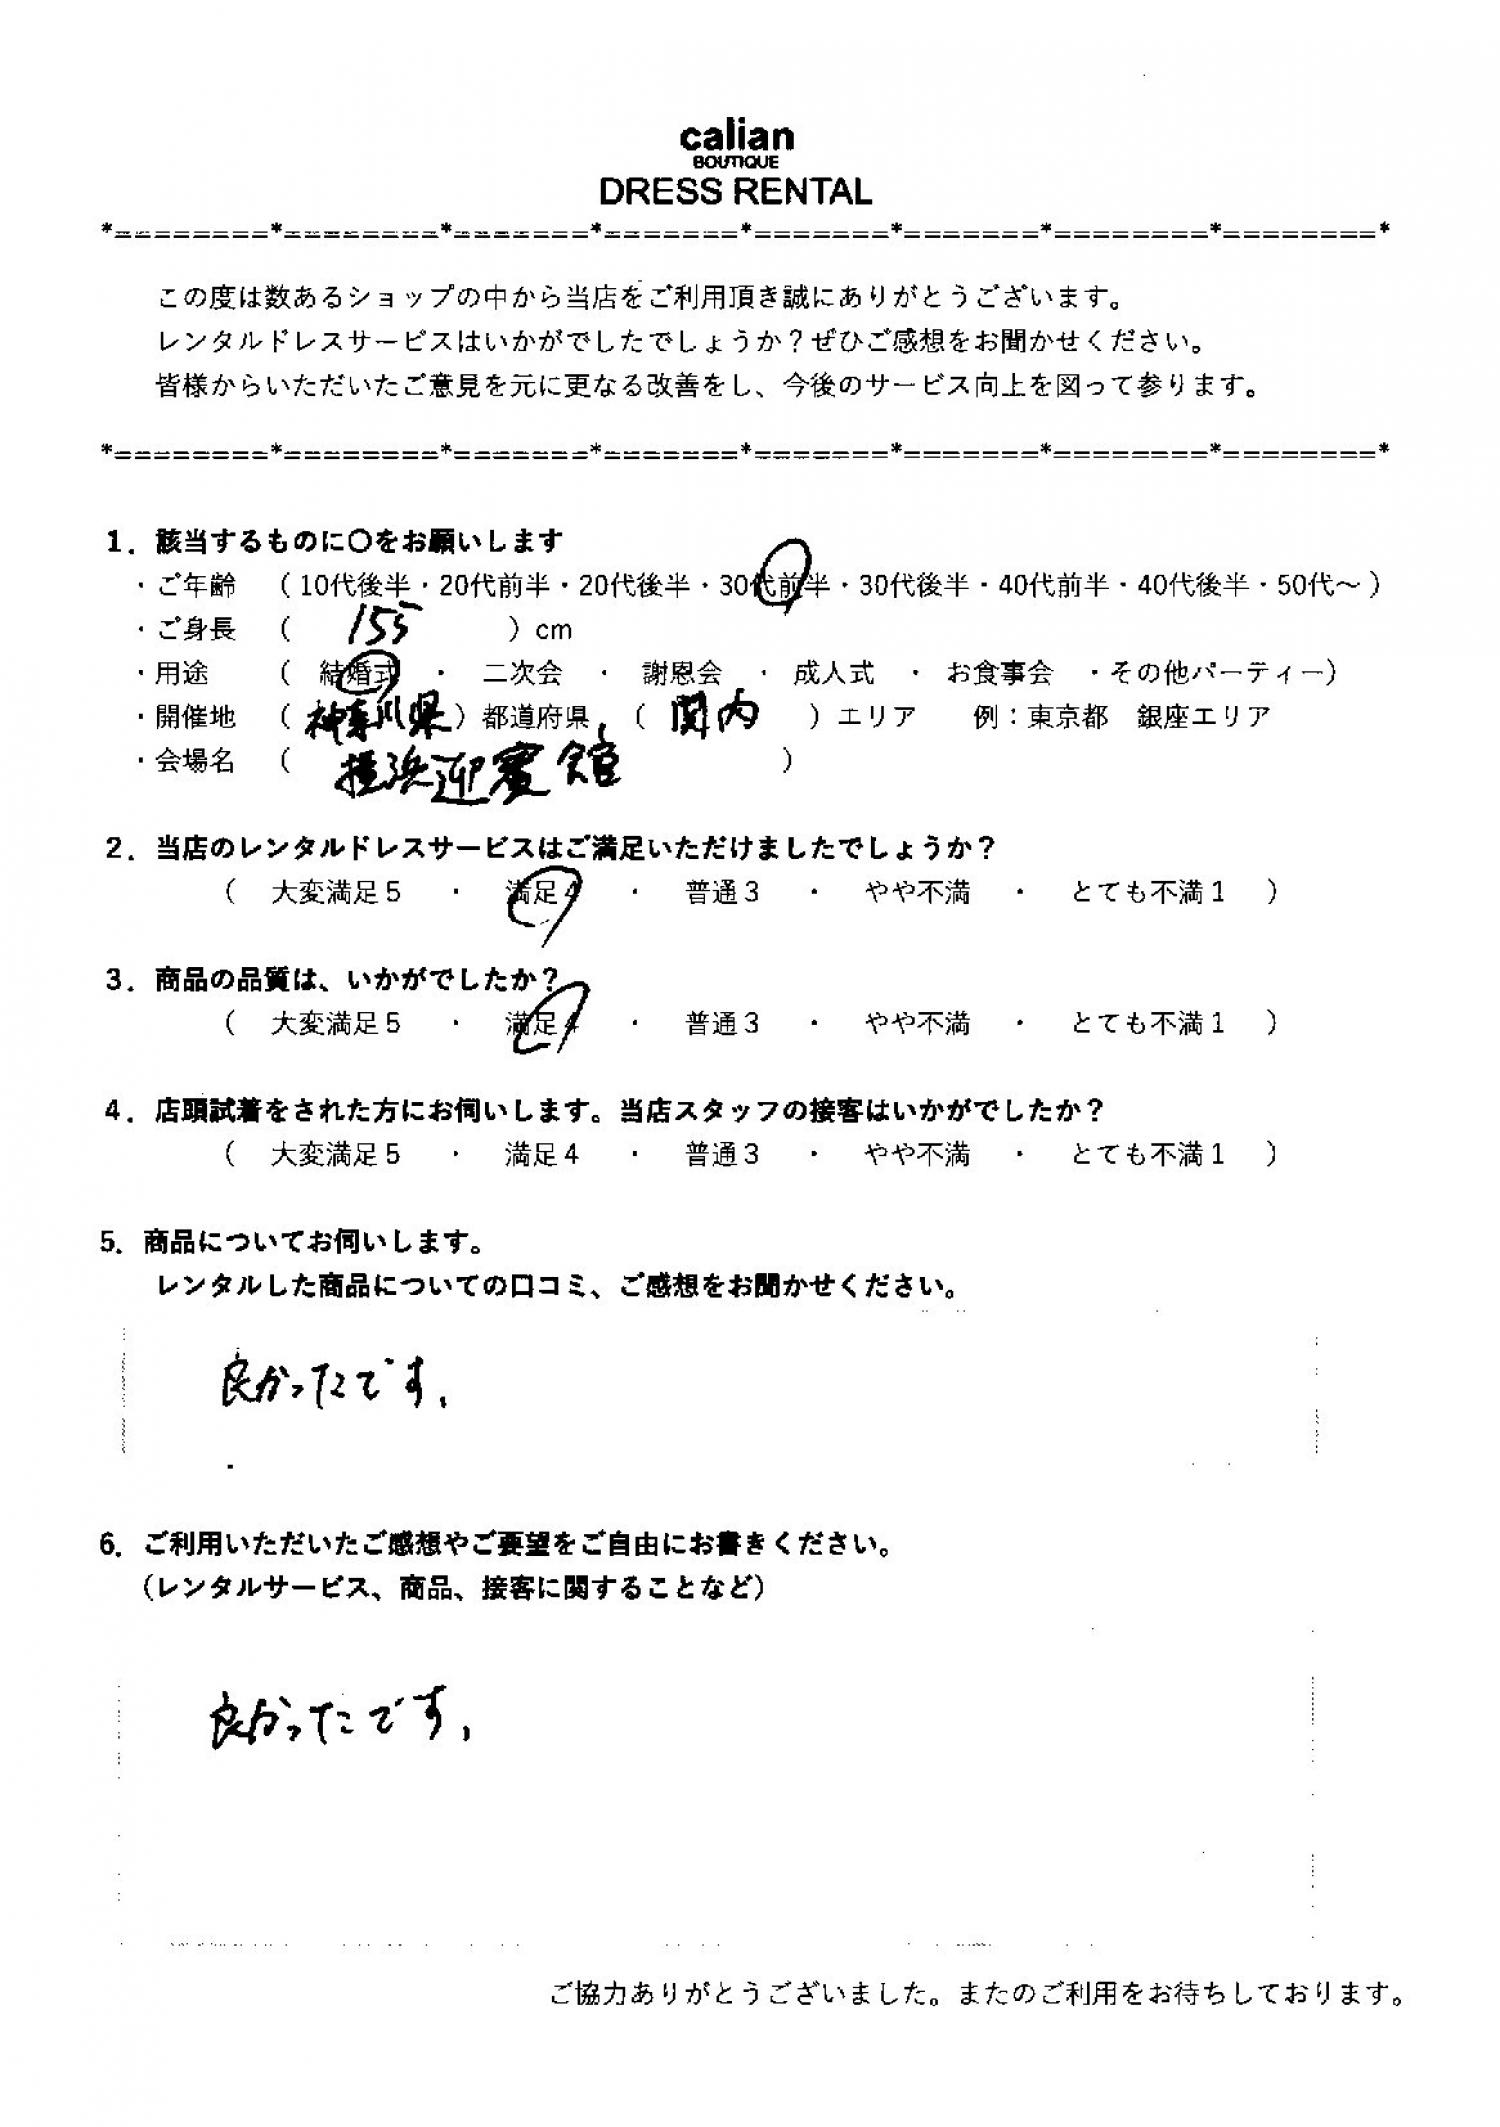 calian
BOUTIQUE
DRESS RENTAL
*========*========*=======*=======*=======*=======*========*========*
この度は数あるショップの中から当店をご利用頂き誠にありがとうございます。
レンタルドレスサービスはいかがでしたでしょうか？ぜひご感想をお聞かせください。
皆様からいただいたご意見を元に更なる改善をし、今後のサービス向上を図って参ります。
*========*========*=======*=======*=======*=======*========*========*
1．該当するものに〇をお願いします
・ご年齢 （10代後半・20代前半・20代後半・30代前半・30代後半・40代前半・40代後半・50代～）
・ご身長 （ 155 ）cm
・用途 （ 結婚式 ・ 二次会 ・ 謝恩会 ・ 成人式 ・ お食事会 ・その他パーティー）
・開催地 （ 神奈川県 ）都道府県 （ 関内 ）エリア 例：東京都 銀座エリア
・会場名 （ 横浜迎賓館 ）
2．当店のレンタルドレスサービスはご満足いただけましたでしょうか？
（ 大変満足５ ・ 満足４ ・ 普通３ ・ やや不満 ・ とても不満１ ）
3．商品の品質は、いかがでしたか？
（ 大変満足５ ・ 満足４ ・ 普通３ ・ やや不満 ・ とても不満１ ）
4．店頭試着をされた方にお伺いします。当店スタッフの接客はいかがでしたか？
（ 大変満足５ ・ 満足４ ・ 普通３ ・ やや不満 ・ とても不満１ ）
5．商品についてお伺いします。
レンタルした商品についての口コミ、ご感想をお聞かせください。
良かったです、
6．ご利用いただいたご感想やご要望をご自由にお書きください。
（レンタルサービス、商品、接客に関することなど）
良かったです、
ご協力ありがとうございました。またのご利用をお待ちしております。